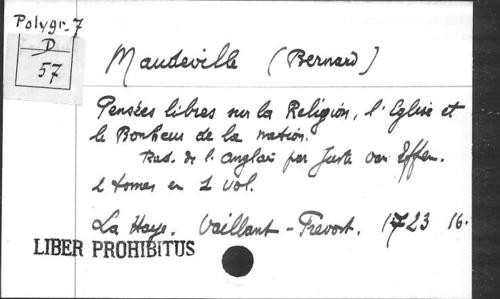 Polygr. 7
D
57
Mandeville (Bernard)
Pensées libres sur la Religion, l'Eglise et
le Bonheur de la nation.
Trad. de l'anglais par Juste van Effen.
2 tomes en 1 vol.
La Haye. Vaillant - Prevost. 1723 16.
LIBER PROHIBITUS